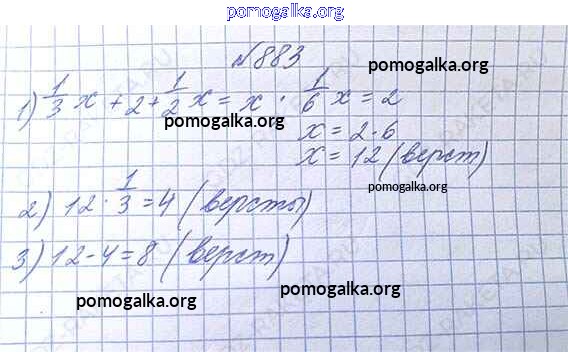 pomogalka.org
№883
pomogalka.org
1) 1/3 x + 2 + 1/2 x = x ; 1/6 x = 2
pomogalka.org
x = 2·6
x = 12 (верст)
pomogalka.org
2) 12 · 1/3 = 4 (версты)
3) 12 - 4 = 8 (верст)
pomogalka.org
pomogalka.org